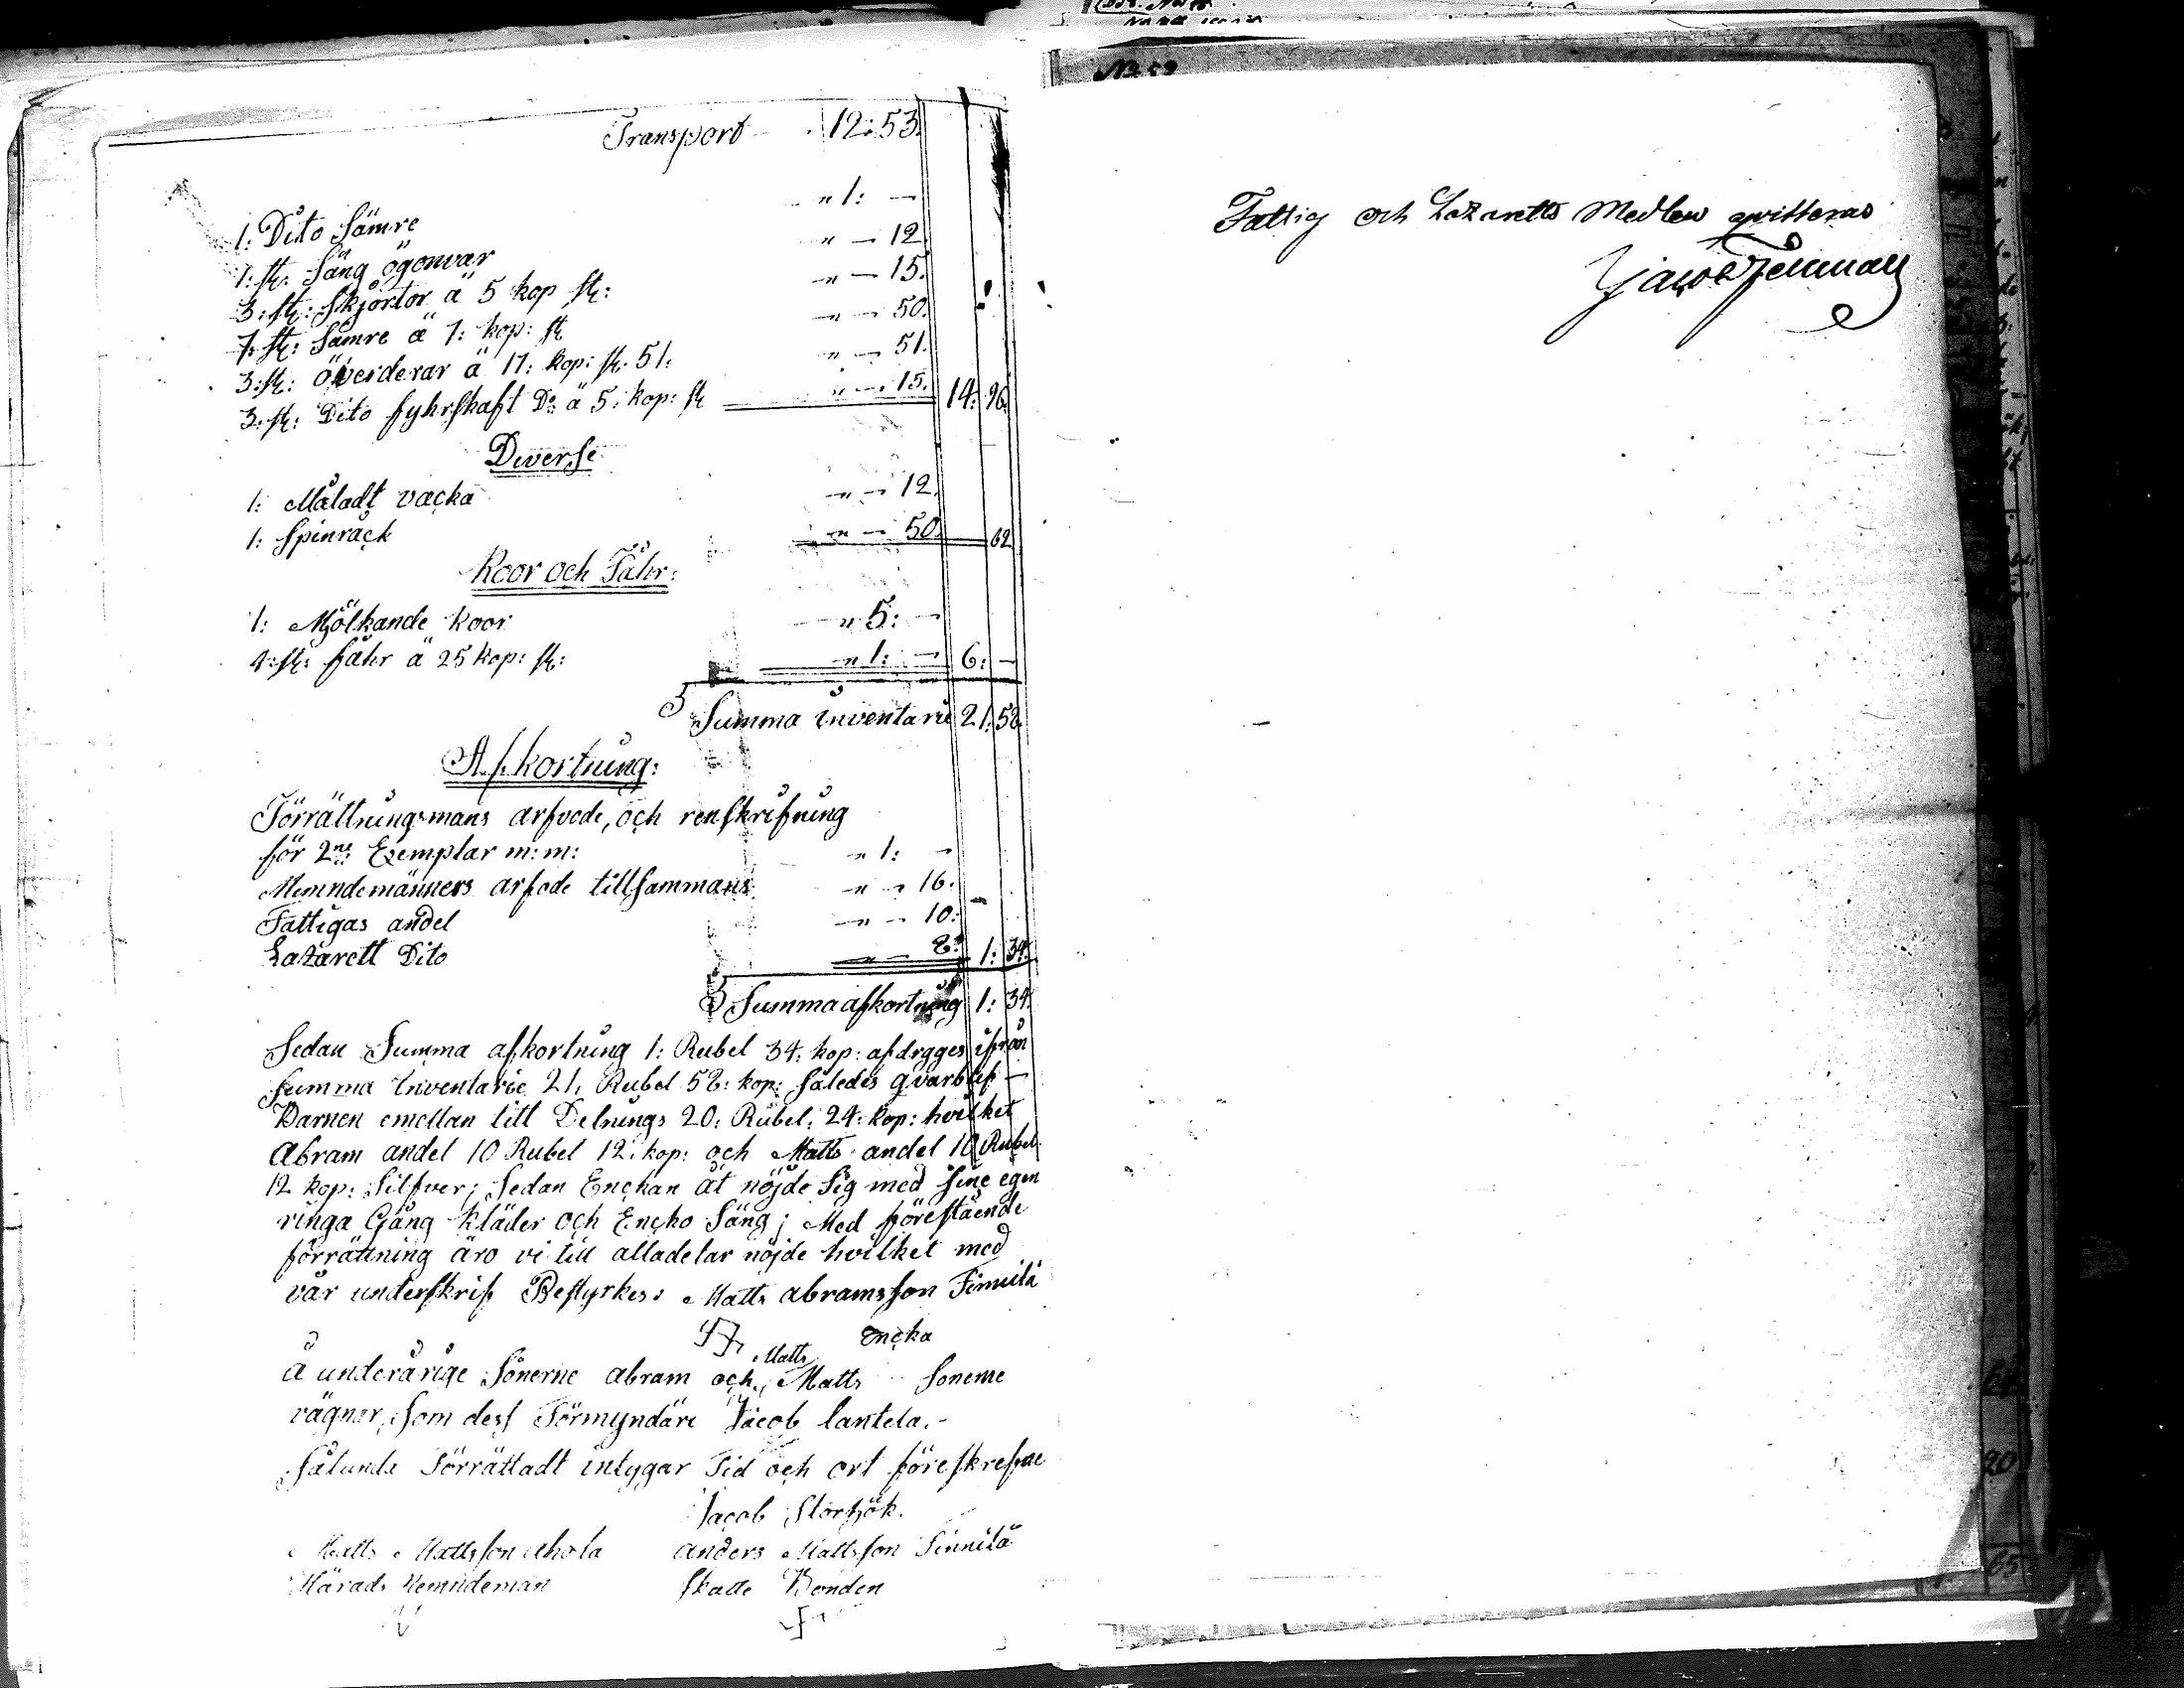 Transport 12:53.
1: Dito Sämre " 1: —
1: st: Säng ögonvar " — 12
3: st: Skjörtor ä 5 kop st: " — 15.
7: st: Sämre ä 7: kop: st " — 50.
3: st: överderar ä 17: kop: st. 51. " — 51.
3: st: Dito fyhrskaft Do ä 5: kop: st " — 15. 14: 96.
Diverse
1: Måladt vacka " — 12.
1: Spinråck " — 50. 62
Koor och Fåhr:
1: Mjölkande Koor " 5: —
4: st: fåhr ä 25 kop: st: " 1: — 6: —
Summa inventarie 21: 58.
Afkortning:
Förrättningsmans arfvode, och renskrifning
för 2ne Exemplar m: m: " 1: —
Nemndemänners arfode tillsammans " — 16.
Fattigas andel " — 10:
Lazarett Dito " — 8: 1: 34.
Summa afkortning 1: 34.
Sedan Summa afkortning 1: Rubel 34: kop: afdrgges ifrån
summa Inventarie 21. Rubel 58: kop: Således qvarblef —
Barnen emellan till Delnings 20: Rubel: 24: kop: hvilket
Abram andel 10 Rubel 12: kop: och Matts andel 10 Rubel
12 kop: Silfver; Sedan Enckan ät nöjde Sig med sine egen
ringa Gång kläder och Encko Säng; Med förestående
förrättning äro vi till alladelar nöjde hvilket med
vår underskrif Bestyrkes: Matts abramsson Finnilä
encka
å underårige Sönerne abram och Matts Matts Sonerne
vägner, Som dess Förmyndäre Jacob lantela. -
Sålunda Förrättadt intygar Tid och ort föreskrefne
Jacob Storbjök.
Matts Mattsson ahola anders Mattsson Finnilä
Härads Nemndeman Skatte Bonden
Fattig och Lazaretts Medlen qvitteras